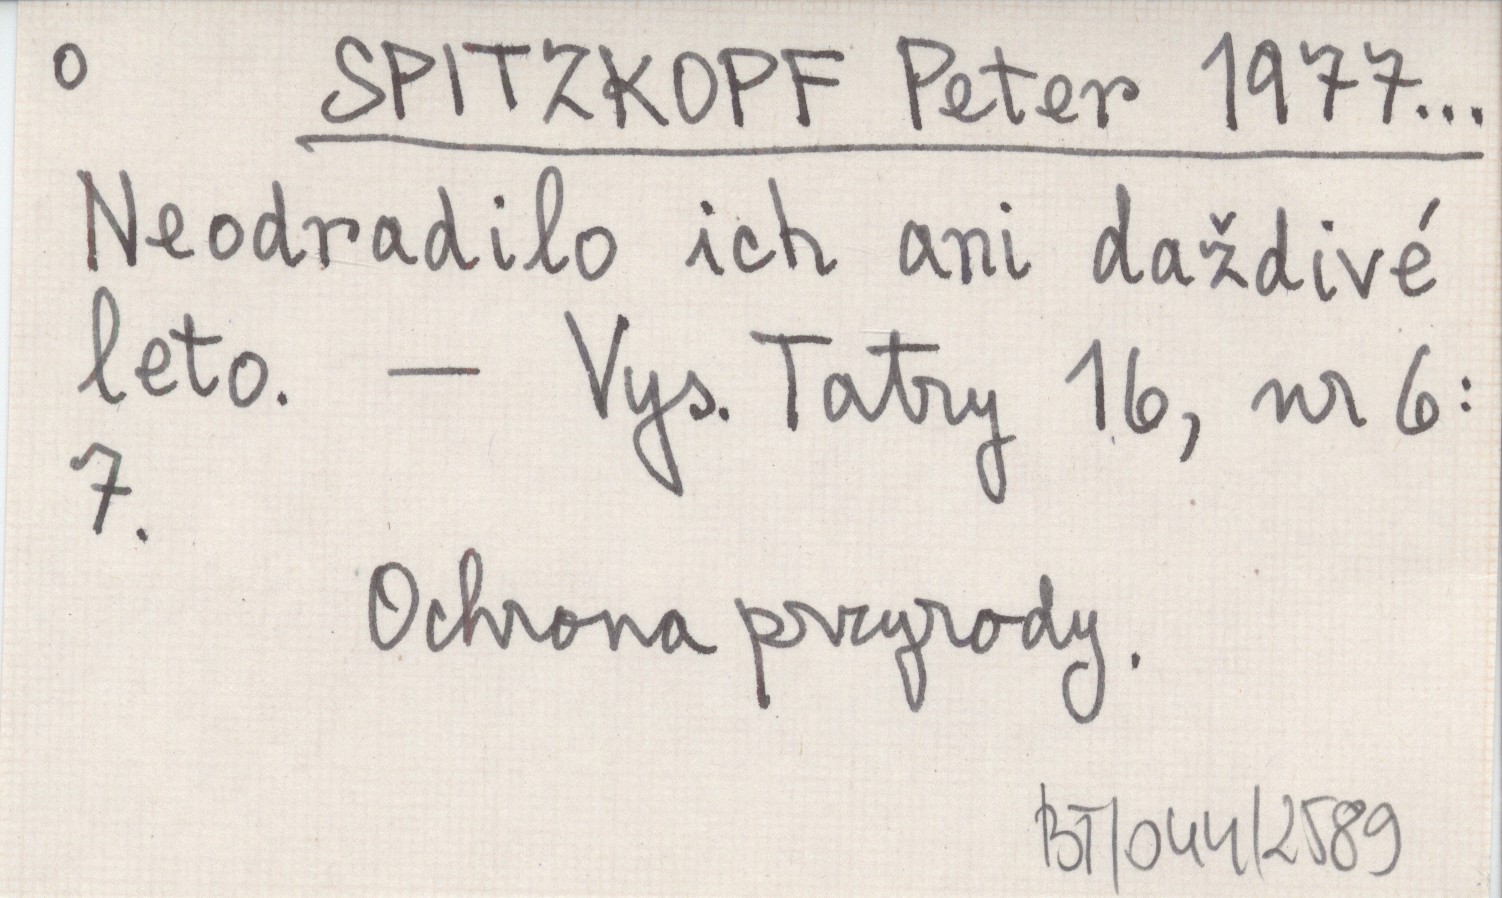 o SPITZKOPF Peter 1977...
Neodradilo ich ani daždivé
leto. — Vys. Tatry 16, nr 6:
7.
Ochrona przyrody.
BT/044/2589